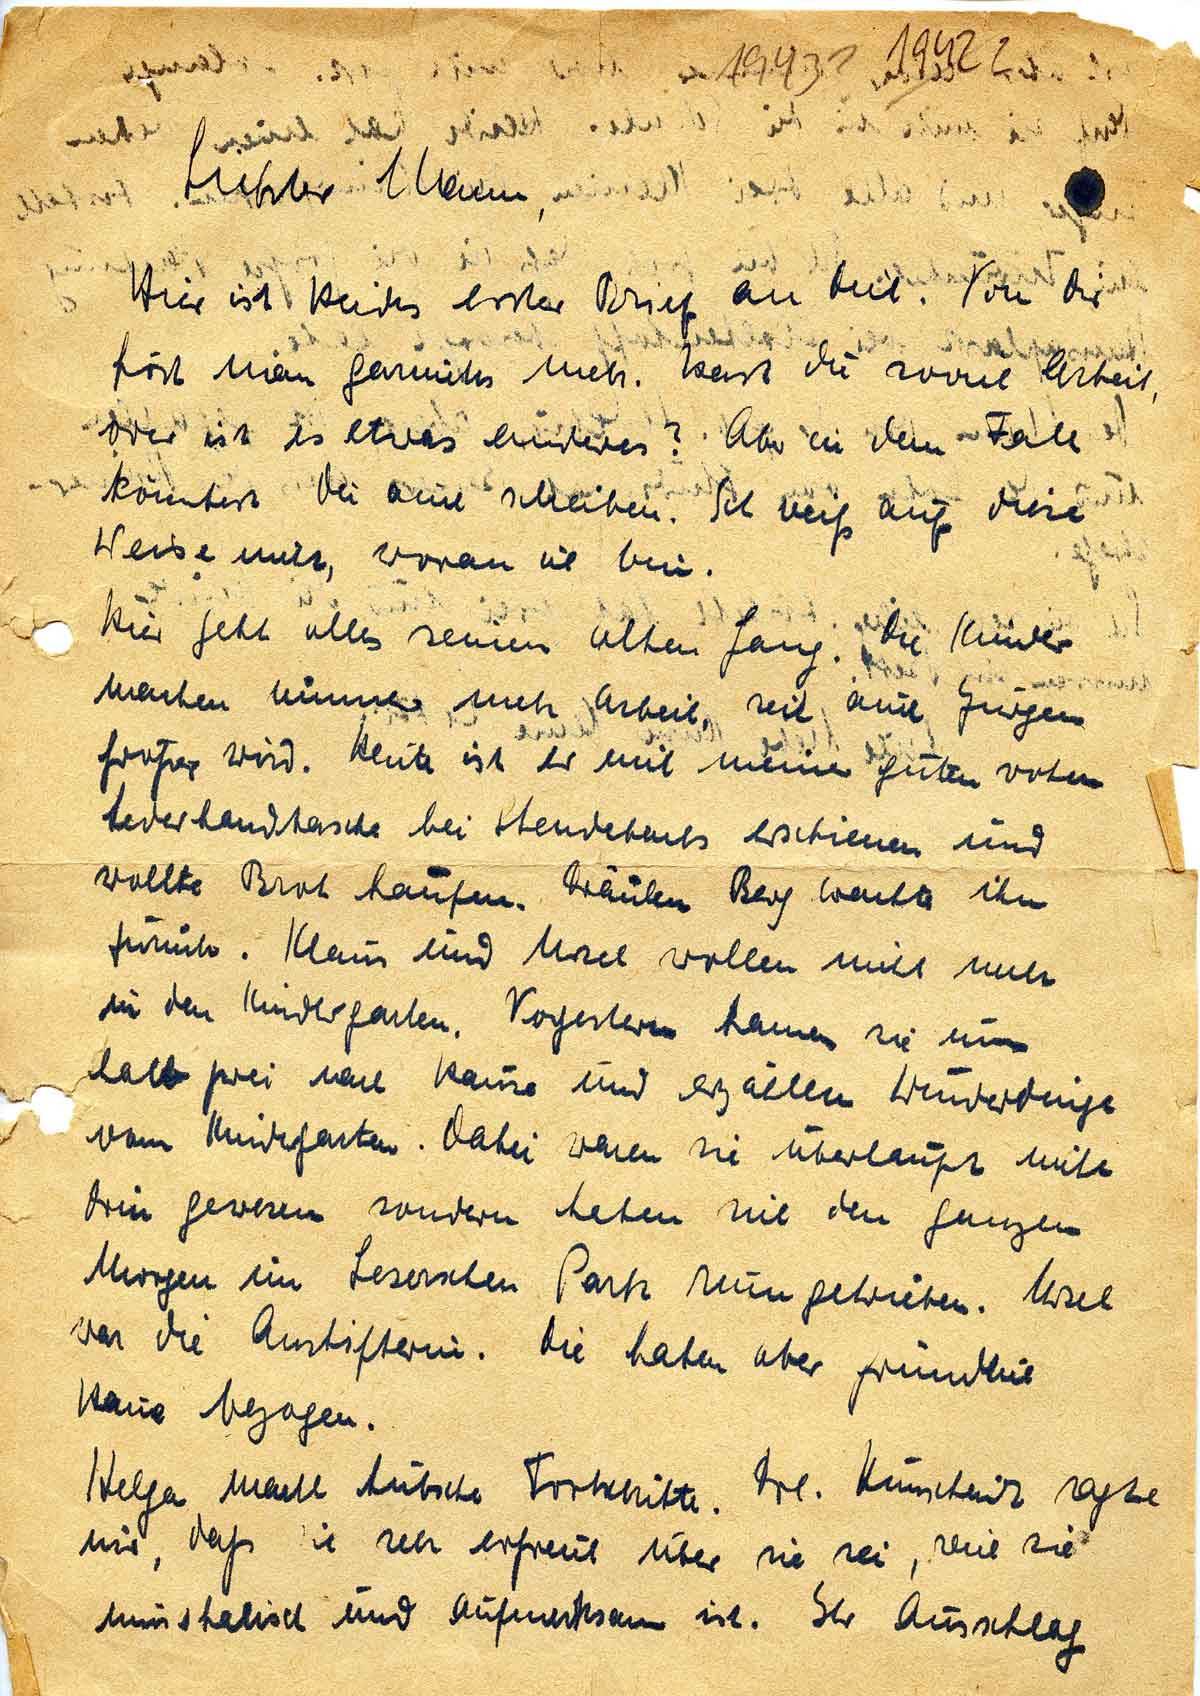 1943? 1942?
Liebster Mann,
Hier ist Heides erster Brief an Dich. Von Dir
hört man garnichts mehr. Hast Du soviel Arbeit,
oder ist es etwas anderes? Aber in dem Falle
könntest Du auch schreiben. Ich weiß auf diese
Weise nicht, woran ich bin.
Hier geht alles seinen alten Gang. Die Kinder
machen immer mehr Arbeit, seit auch Jürgen
größer wird. Heute ist er mit meiner guten roten
Lederhandtasche bei erschienen und
wollte Brot kaufen. Fräulein Berg brachte ihn
zurück. Klaus und Ursel wollen nicht mehr
in den Kindergarten. Vorgestern kamen sie um
halb zwei nach Hause und erzählen Wunderdinge
vom Kindergarten. Dabei waren sie überhaupt nicht
drin gewesen sondern haben sich den ganzen
Morgen im Park rumgetrieben. Ursel
war die Anstifterin. Die haben aber gründlich
Haue bezogen.
Helga macht hübsche Fortschritte. Frl. sagte
mir, daß sie sehr erfreut über sie sei, weil sie
musikalisch und aufmerksam ist. Ihr Ausschlag